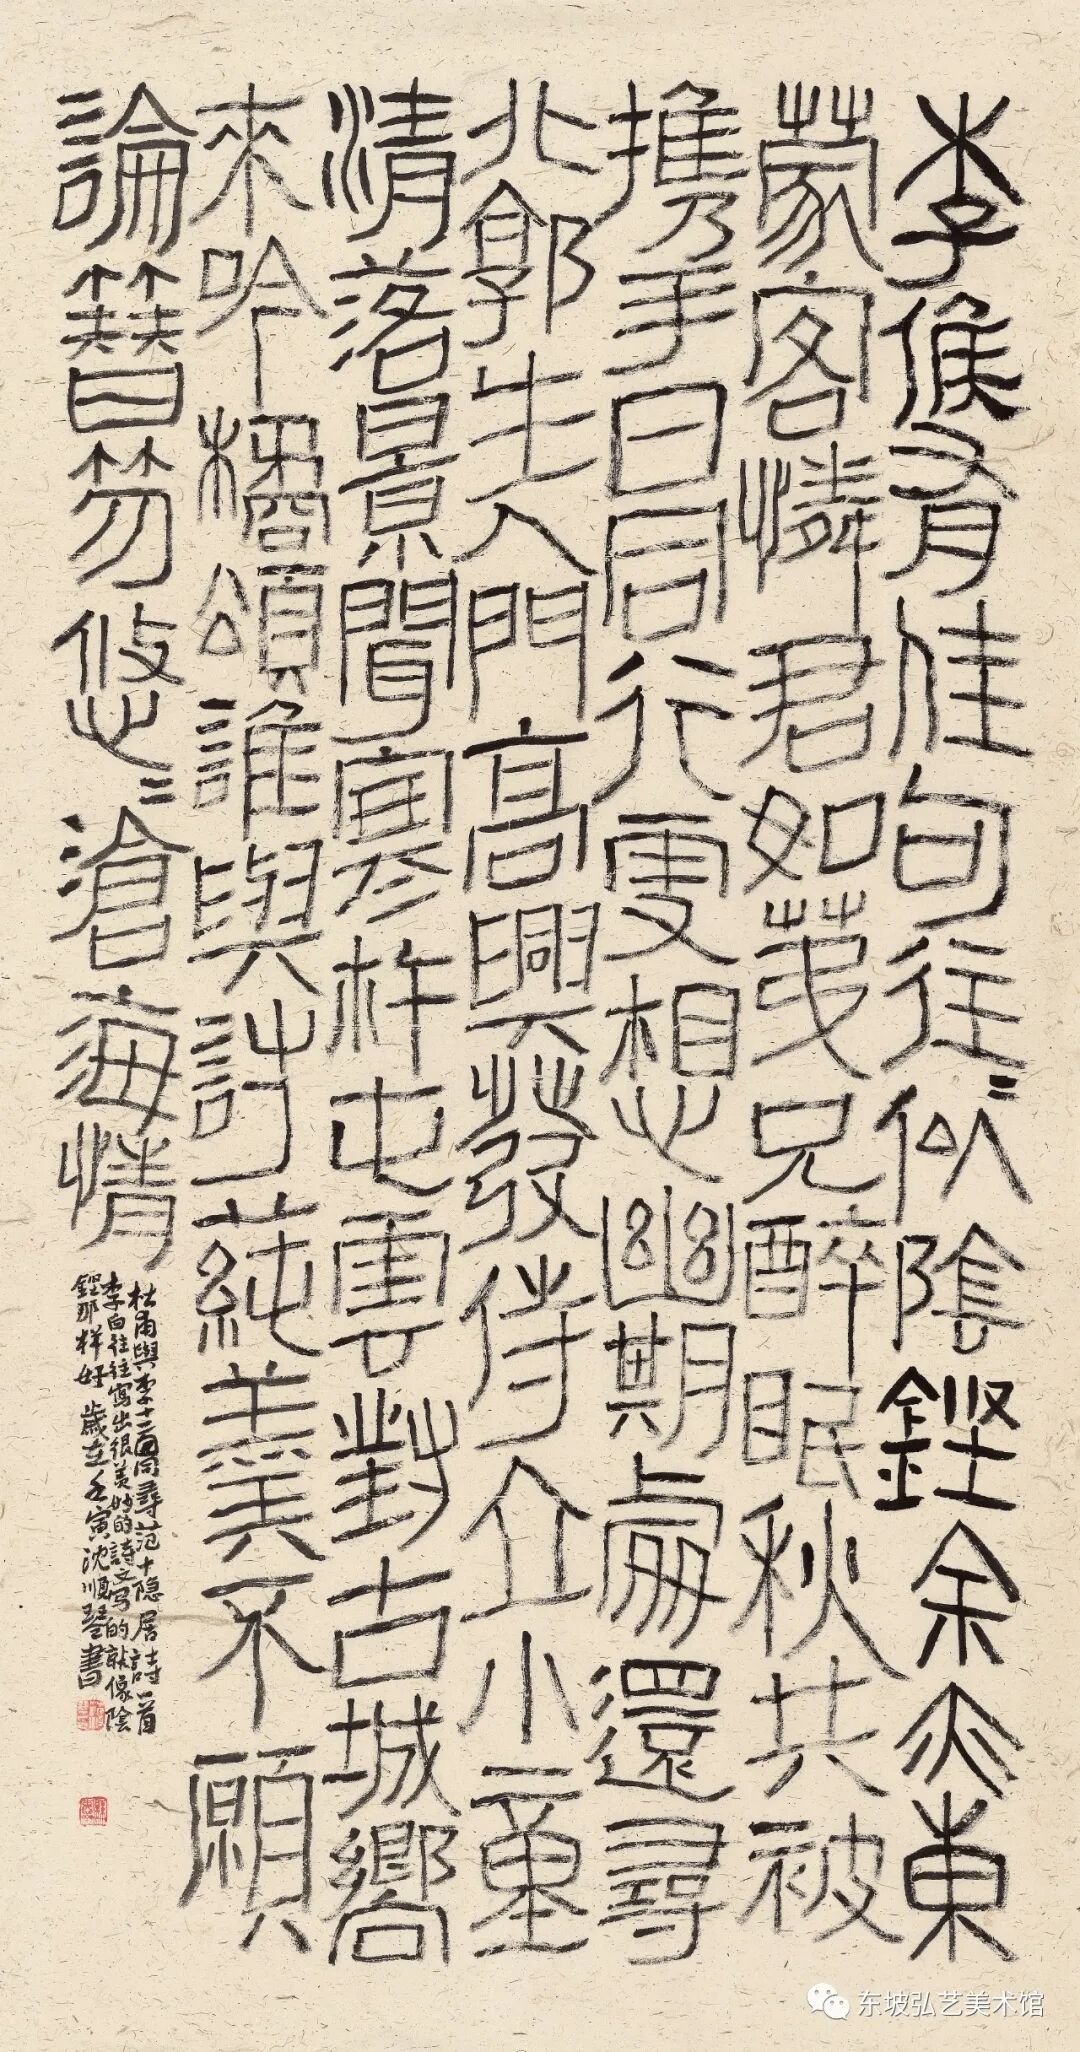 李侯有佳句往〻似陰鏗余亦東
蒙客憐君如苐兄醉眠秋共被
携手日同行更想幽期處還尋
北郭生入門高興發侍立小童
清落景聞寒杵屯雲對古城嚮
來吟橘頌誰與討蒓羹不願
論簪笏悠〻滄海情
杜甫與李十二白同尋范十隐居詩一首
李白往往寫出很美妙的詩文写的就像陰
鏗那样好 歲在壬寅沈順琴書
东坡弘艺美术馆